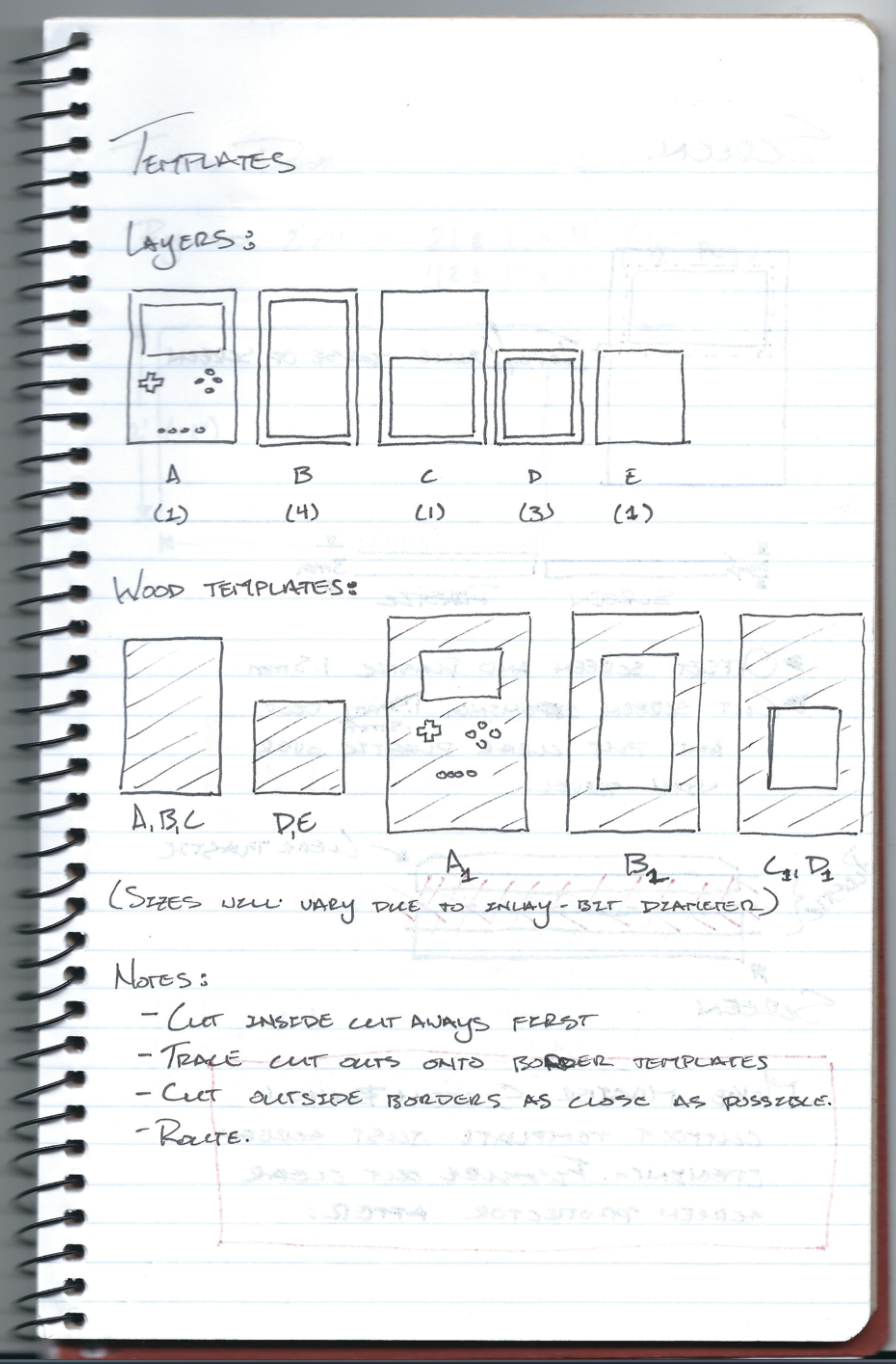 TEMPLATES
LAYERS:
A B C D E
(1) (4) (1) (3) (1)
WOOD TEMPLATES:
A,B,C D,E A1 B1 C1, D1
(SIZES WILL VARY DUE TO INLAY-BIT DIAMETER)
NOTES:
- CUT INSIDE CUT AWAYS FIRST
- TRACE CUT OUTS ONTO BORDER TEMPLATES
- CUT OUTSIDE BORDERS AS CLOSE AS POSSIBLE.
- ROUTE.